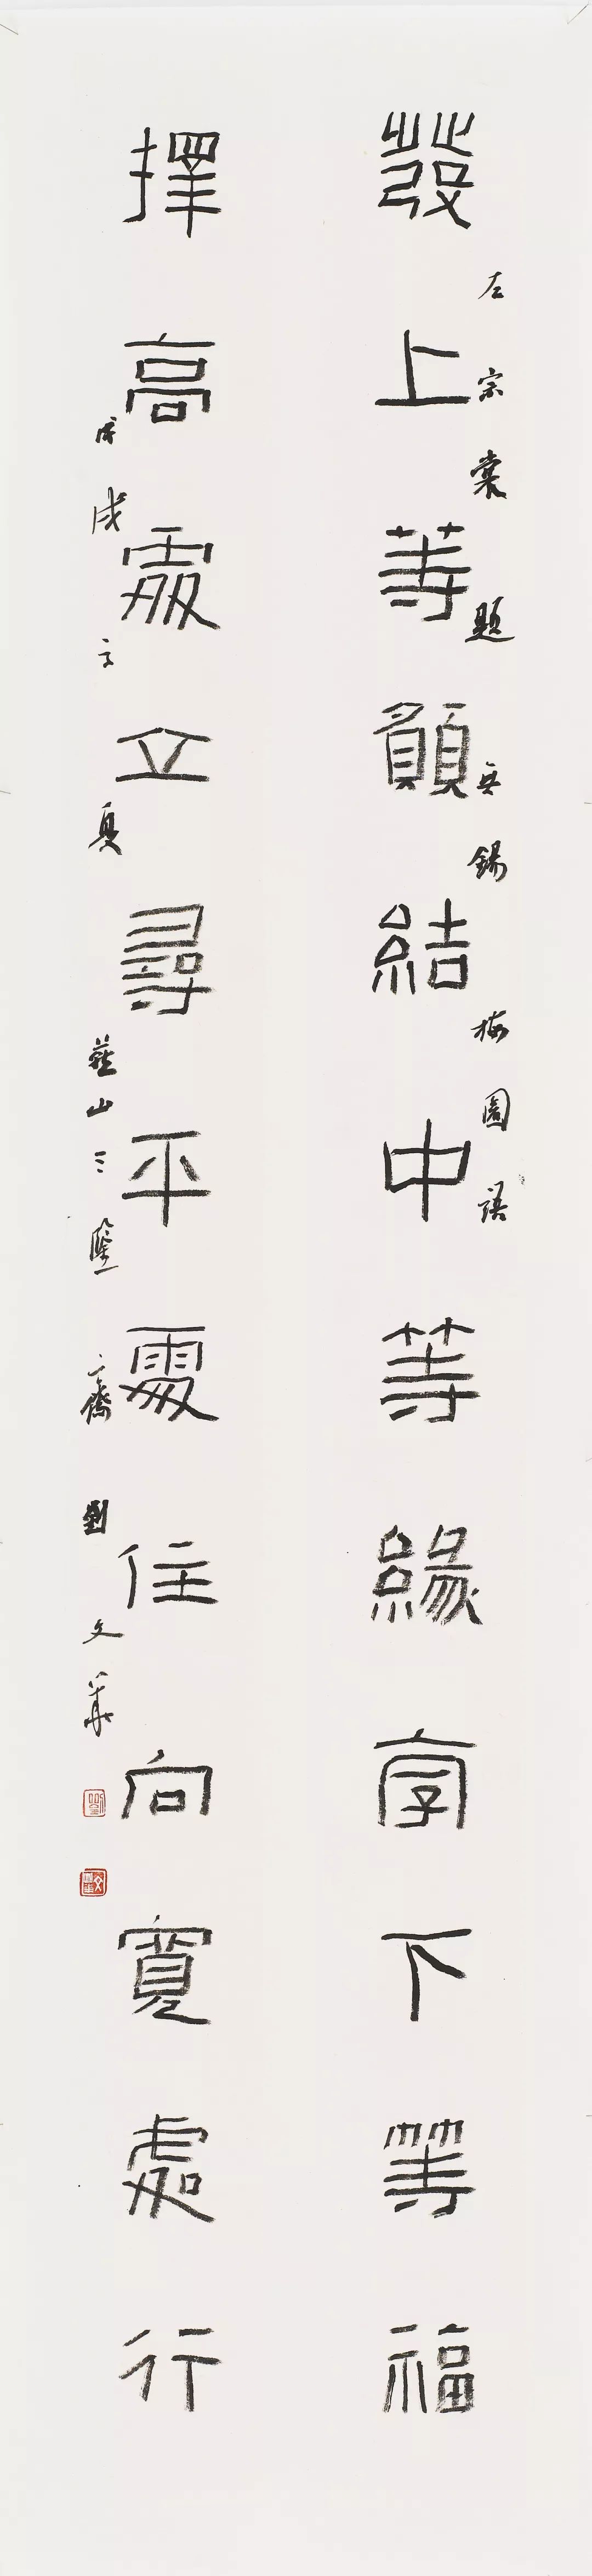 發上等願結中等緣享下等福
左宗棠題無錫梅園語
擇高處立尋平處住向寬處行
戊戌立夏山三齋劉文華